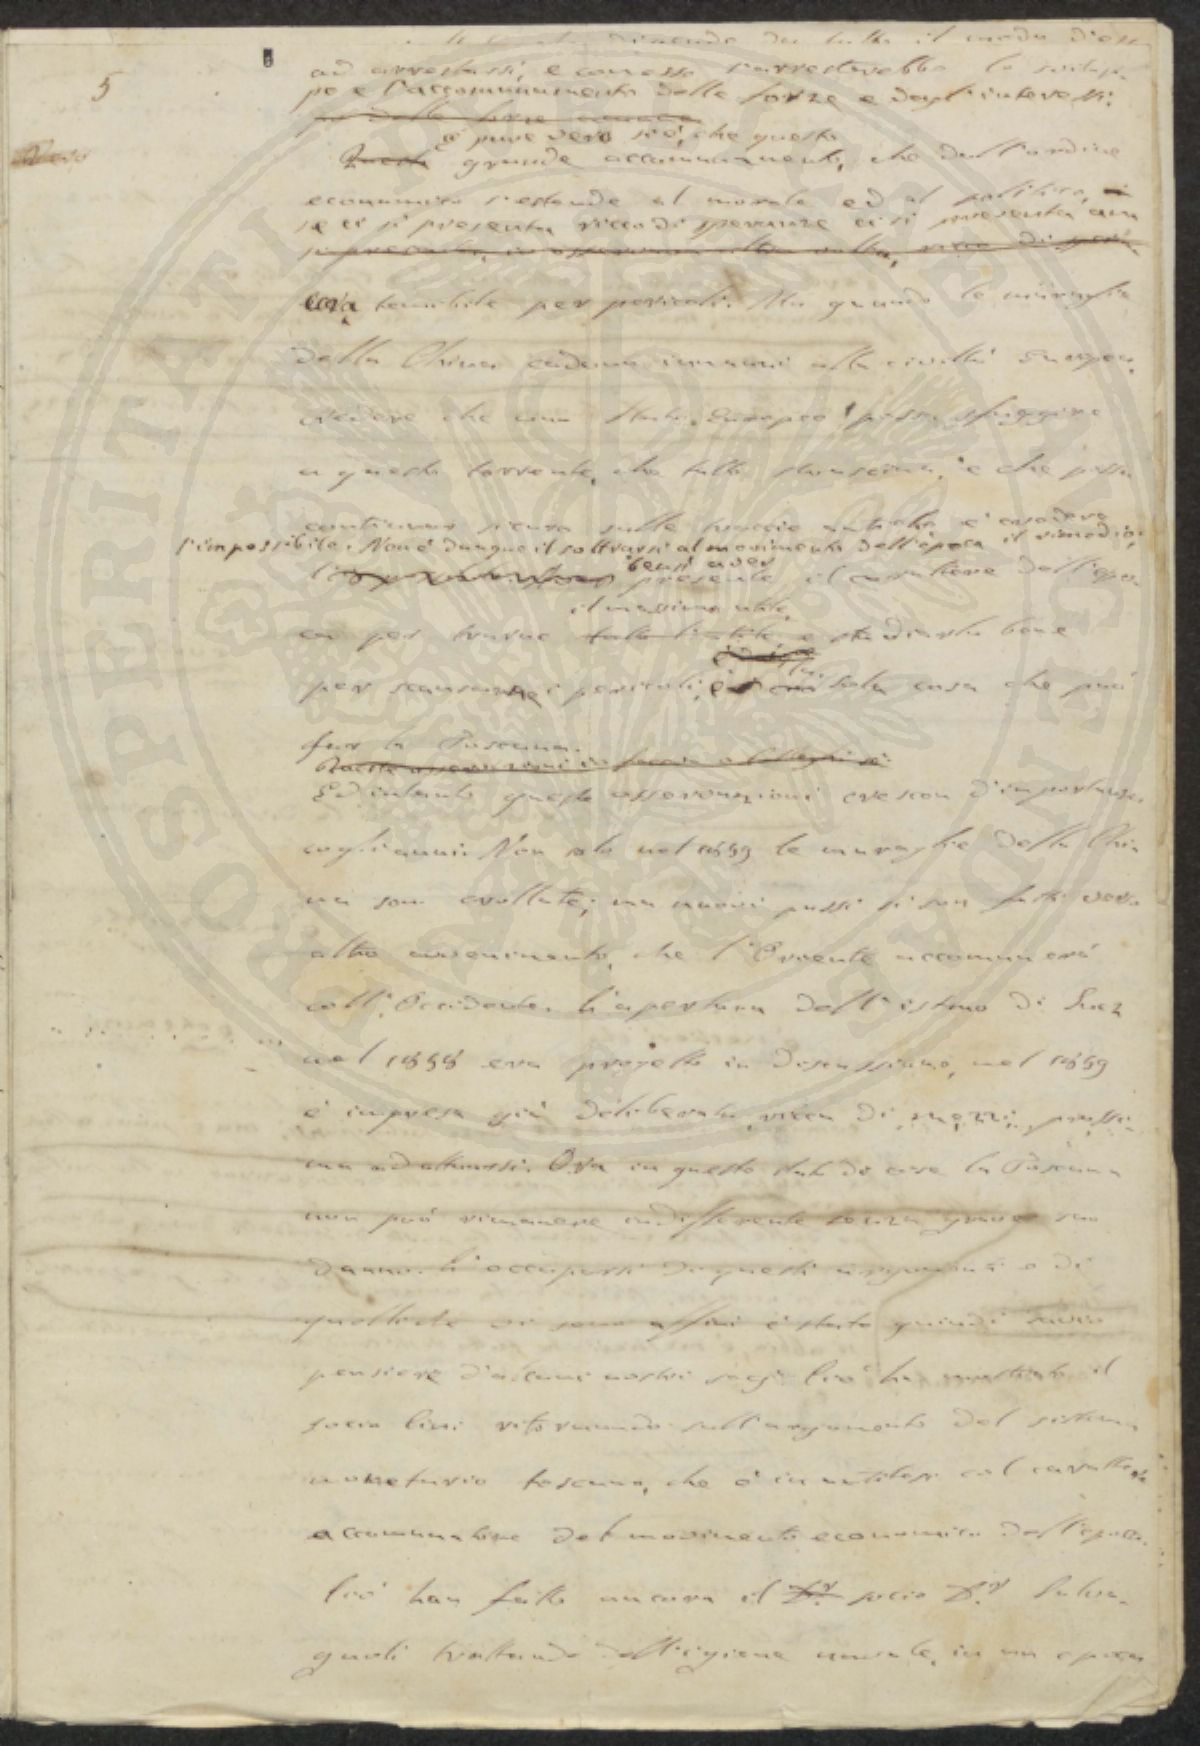 5
dipende da tutto il modo d'ess
ad arrestarsi, e con esso s'arresterebbe lo svilup
po e l'accomunamento delle forze e degl'interessi:
è pure vero si è, che questo
Vero
Questo grande accomunamento, che dall'ordine
economico s'estende al morale ed al politico,
se ci si presenta ricco di speranze ci si presenta anc
cora temibile per pericoli. Ma quando le muraglie
della China cadono innanzi alla civiltà Europea,
credere che uno Stato Europeo possa sfuggire
a questo torrente, che tutto strascina, e che possa
continuar sicuro sulle traccie antiche è credere
l'impossibile. Non è dunque il sottrarsi al movimento dell'epoca il rimedio:
bensì aver
presente il carattere dell'epo
il massimo utile,
ca per trarne tutto l'utile e studiarlo bene
per scansarne i pericoli, è la sola cosa che può
far la Toscana.
Queste osservazioni in faccia a
Ed intanto queste osservazioni crescon d'importanza
cogli anni. Non solo nel 1859 le muraglie della Chi
na son crollate; ma nuovi passi si son fatti verso
altro avvenimento, che l'Oriente accomunerà
coll'Occidente. L'apertura dell'istmo di Suez
nel 1858 era progetto in discussione, nel 1859
è impresa già deliberata, ricca di mezzi, prossi
ma ad attuarsi. Ora in questo stato di cose la Toscana
non può rimanere indifferente senza grave suo
danno. L'occuparsi di questi argomenti e di
quelli che vi sono affini è stato quindi savio
pensiere d'alcuni nostri socj. Ciò ha mostrato il
socio Cini ritornando sull'argomento del sistema
monetario toscano, che è in antitesi col carattere
accomunatore del movimento economico dell'epoca.
Ciò han fatto ancora il Dr. socio Dr. Salva
gnoli trattando dell'igiene navale, in un epoca